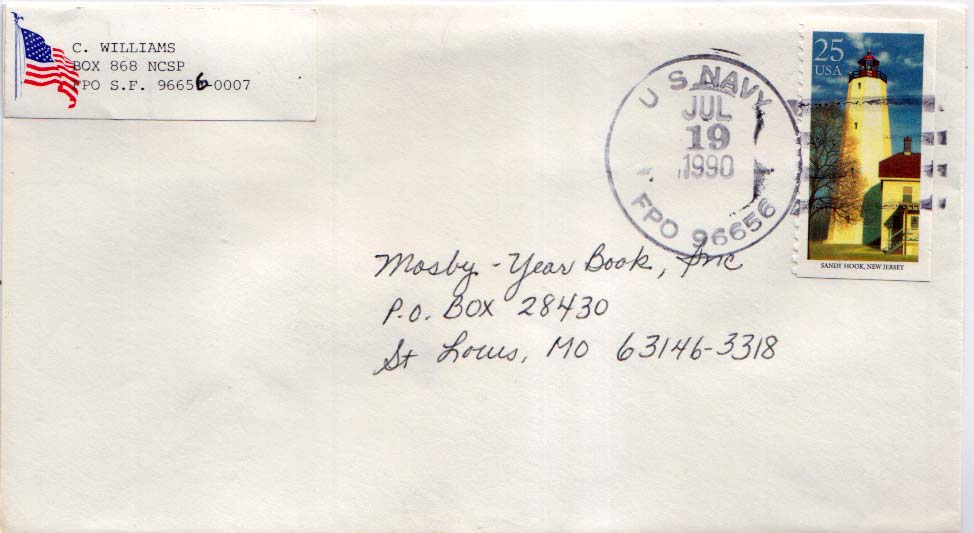 C. WILLIAMS
BOX 868 NCSP
FPO S.F. 96656-0007
U S NAVY
JUL
19
1990
FPO 96656
25
USA
SANDY HOOK, NEW JERSEY
Mosby-Year Book, Inc
P.O. Box 28430
St Louis, MO 63146-3318